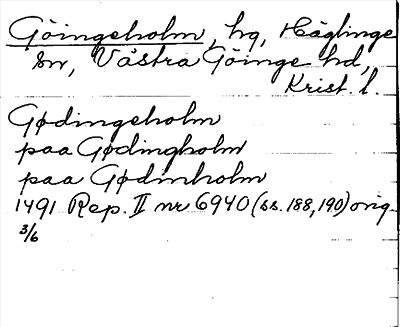 Göingeholm, hg, Häglinge
sn, Västra Göinge hd,
Krist. l.
Gødingeholm
paa Gødingholm
paa Gødinholm
1491 Rep. II nr 6940 (ss. 188, 190) orig.
3/6